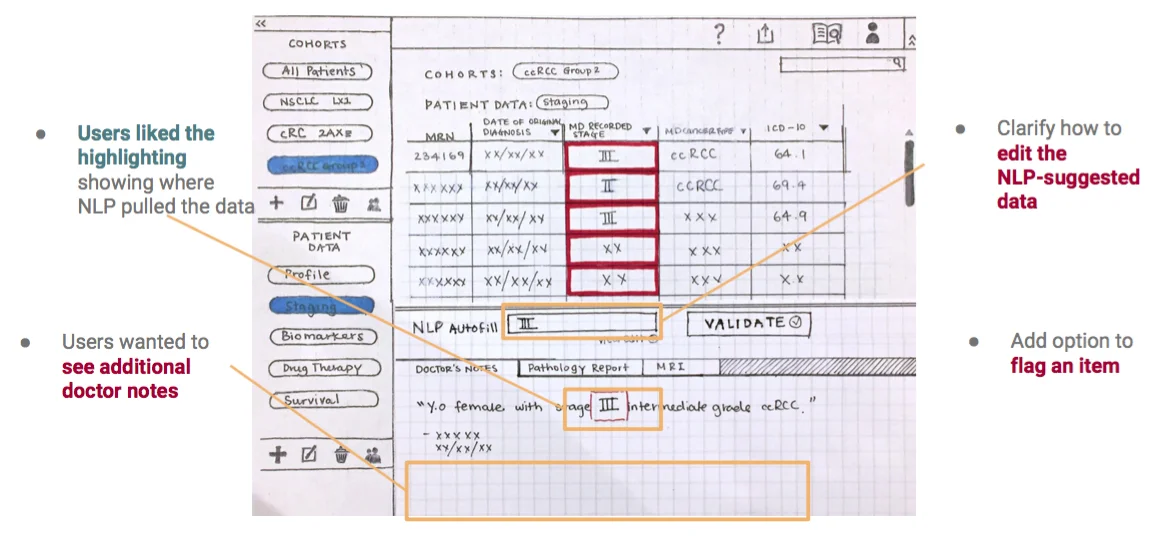 <<
COHORTS
All Patients
NSCLC LX1
cRC 2AXE
ccRCC Group 2
PATIENT
DATA
Profile
Staging
Biomarkers
Drug Therapy
Survival
?
COHORTS: ccRCC Group 2
PATIENT DATA: Staging
MRN
DATE OF ORIGINAL
DIAGNOSIS
MD RECORDED
STAGE
MD CANCER TYPE
ICD-10
234169 xx/xx/xx III ccRCC 64.1
xxxxxx xx/xx/xx II CCRCC 69.4
xxxxxy xx/xx/xy III xxx 64.9
xxxxxx xx/xx/xx xx xxx xx
xxxxxy xx/xx/xx xx xxx x.x
NLP Autofill III VALIDATE
DOCTOR'S NOTES Pathology Report MRI
"Y.o female with stage III intermediate grade ccRCC."
- xxxxx
xx/xx/xx
• Users liked the
highlighting
showing where
NLP pulled the data
• Users wanted to
see additional
doctor notes
• Clarify how to
edit the
NLP-suggested
data
• Add option to
flag an item